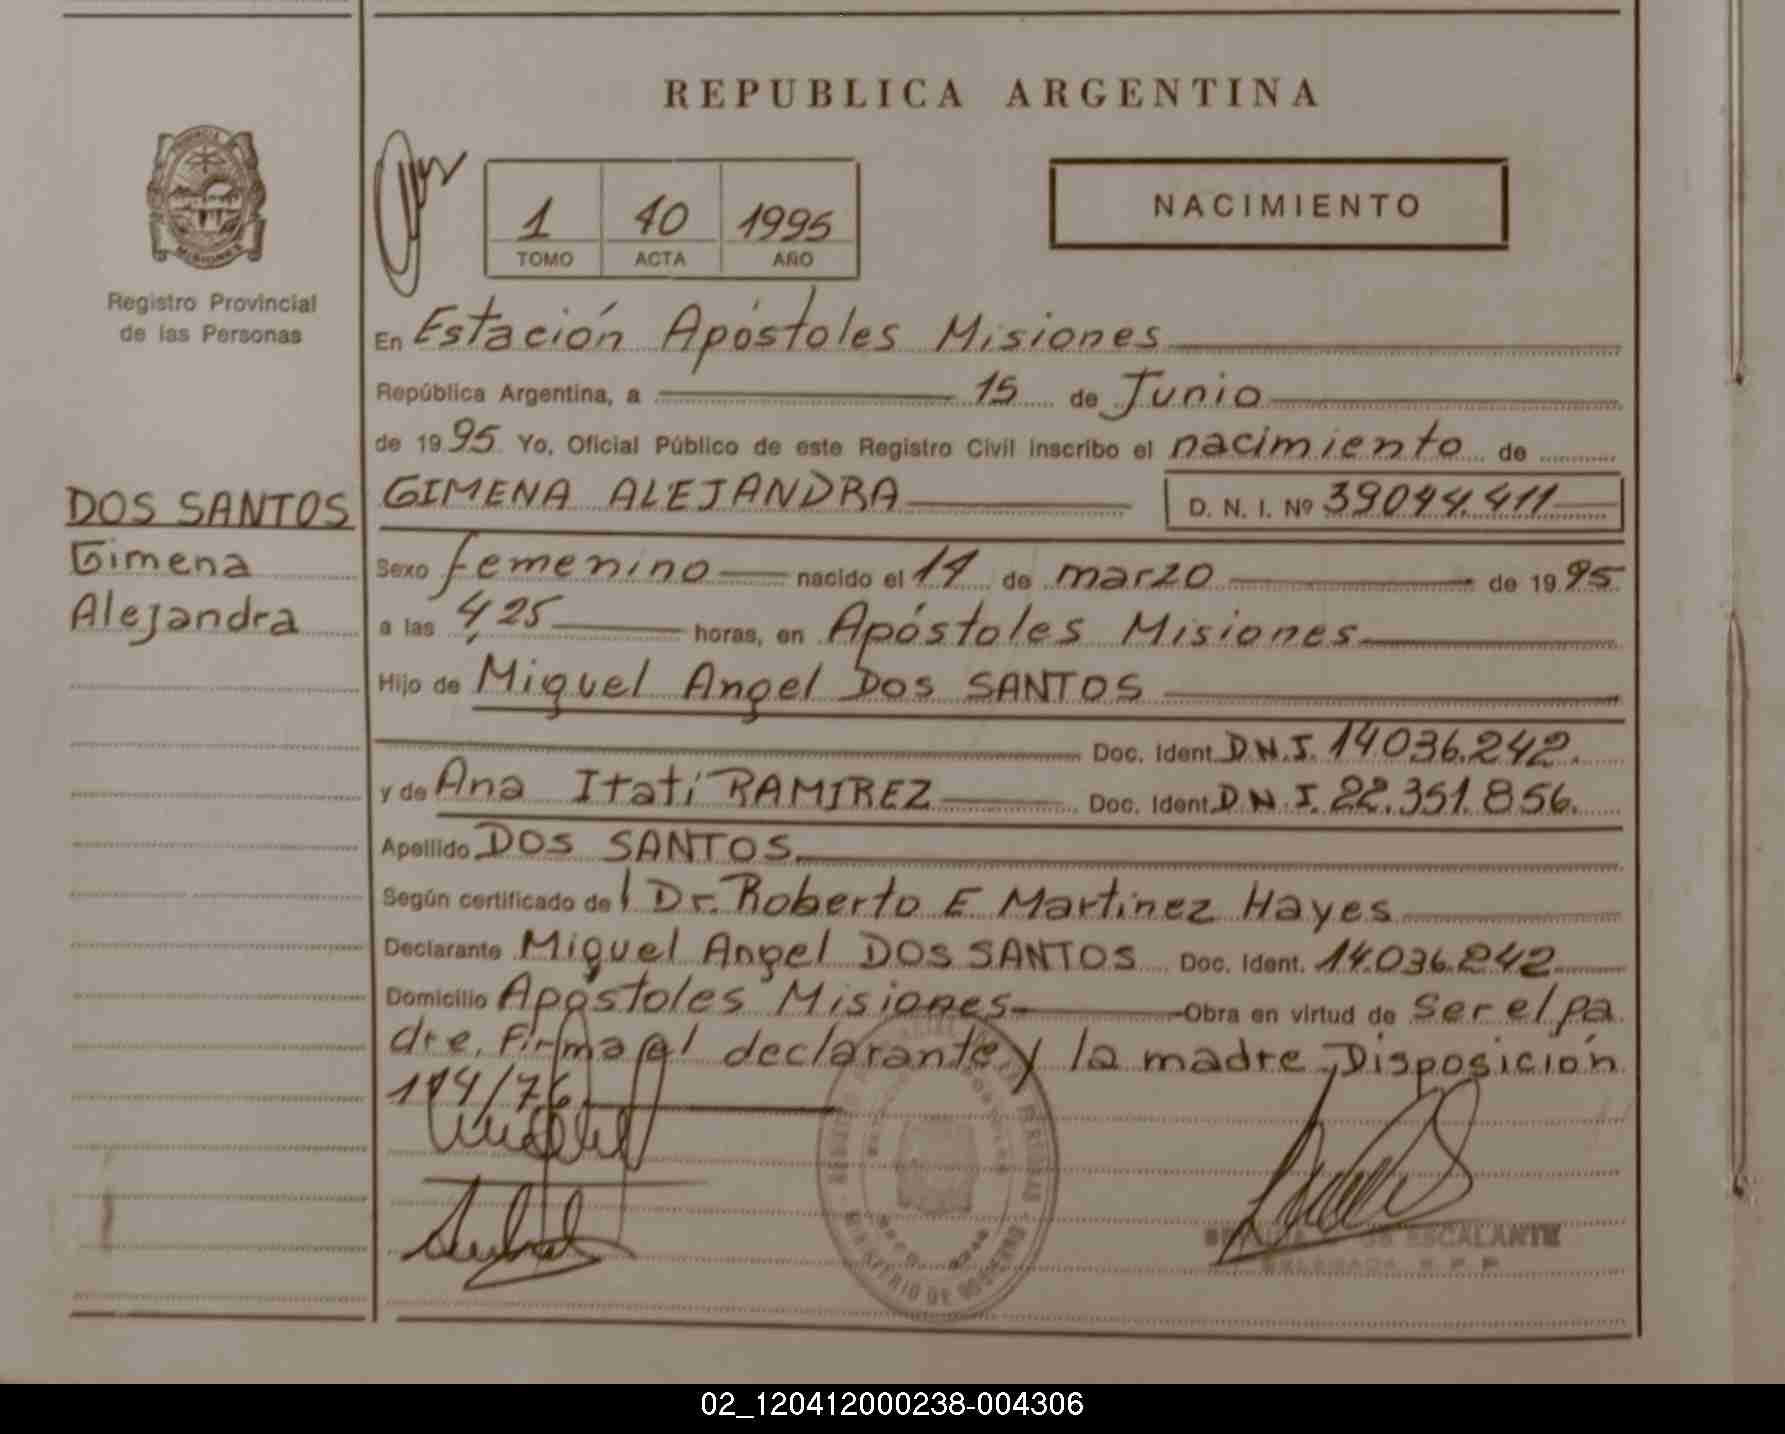 REPUBLICA ARGENTINA
1 40 1995
TOMO ACTA AÑO
NACIMIENTO
MISIONES
Registro Provincial
de las Personas
DOS SANTOS
Gimena
Alejandra
En Estación Apóstoles Misiones
República Argentina, a 15 de Junio
de 1995 Yo, Oficial Público de este Registro Civil inscribo el nacimiento de
GIMENA ALEJANDRA D. N. I. Nº 39044.411
Sexo femenino nacido el 14 de marzo de 1995
a las 4,25 horas, en Apóstoles Misiones
Hijo de Miguel Angel Dos SANTOS
Doc. Ident. D.N.I. 14.036.242.
y de Ana Itatí RAMIREZ Doc. Ident. D.N.I. 22.351.856.
Apellido DOS SANTOS
Según certificado del Dr. Roberto E Martinez Hayes
Declarante Miguel Angel DOS SANTOS Doc. Ident. 14.036.242
Domicilio Apóstoles Misiones Obra en virtud de ser el pa
dre. Firma el declarante y la madre. Disposición
114/76
MINISTERIO DE GOBIERNO
DE ESCALANTE
DELEGADA R.P.P.
02_120412000238-004306